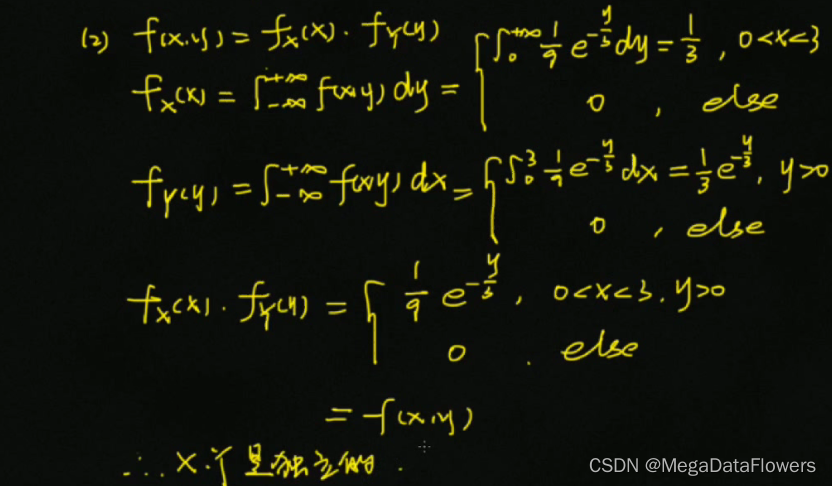 (2) f(x,y) = f_X(x) · f_Y(y)
f_X(x) = ∫_{-∞}^{+∞} f(x,y) dy = { ∫_0^{+∞} 1/9 e^{-y/3} dy = 1/3 , 0<x<3
0 , else
f_Y(y) = ∫_{-∞}^{+∞} f(x,y) dx = { ∫_0^3 1/9 e^{-y/3} dx = 1/3 e^{-y/3} , y>0
0 , else
f_X(x) · f_Y(y) = { 1/9 e^{-y/3} , 0<x<3 , y>0
0 . else
= f(x,y)
∴ X.Y 是独立的 .
CSDN @MegaDataFlowers